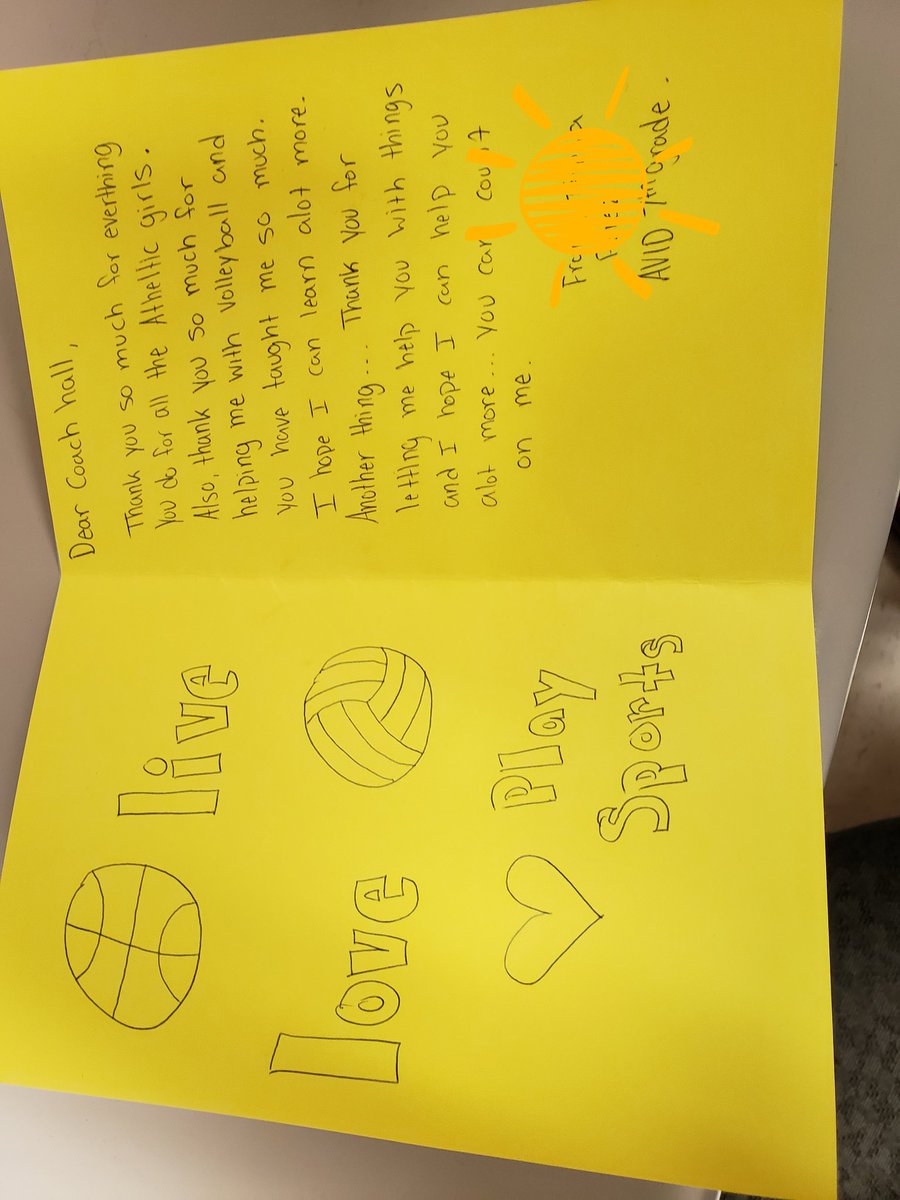 live
love
Play
Sports
Dear Coach hall,
Thank you so much for everthing
you do for all the Atheltic girls.
Also, thank you so much for
helping me with volleyball and
you have taught me so much.
I hope I can learn alot more.
Another thing... Thank you for
letting me help you with things
and I hope I can help you
alot more... you can count
on me.
AVID 7th grade.